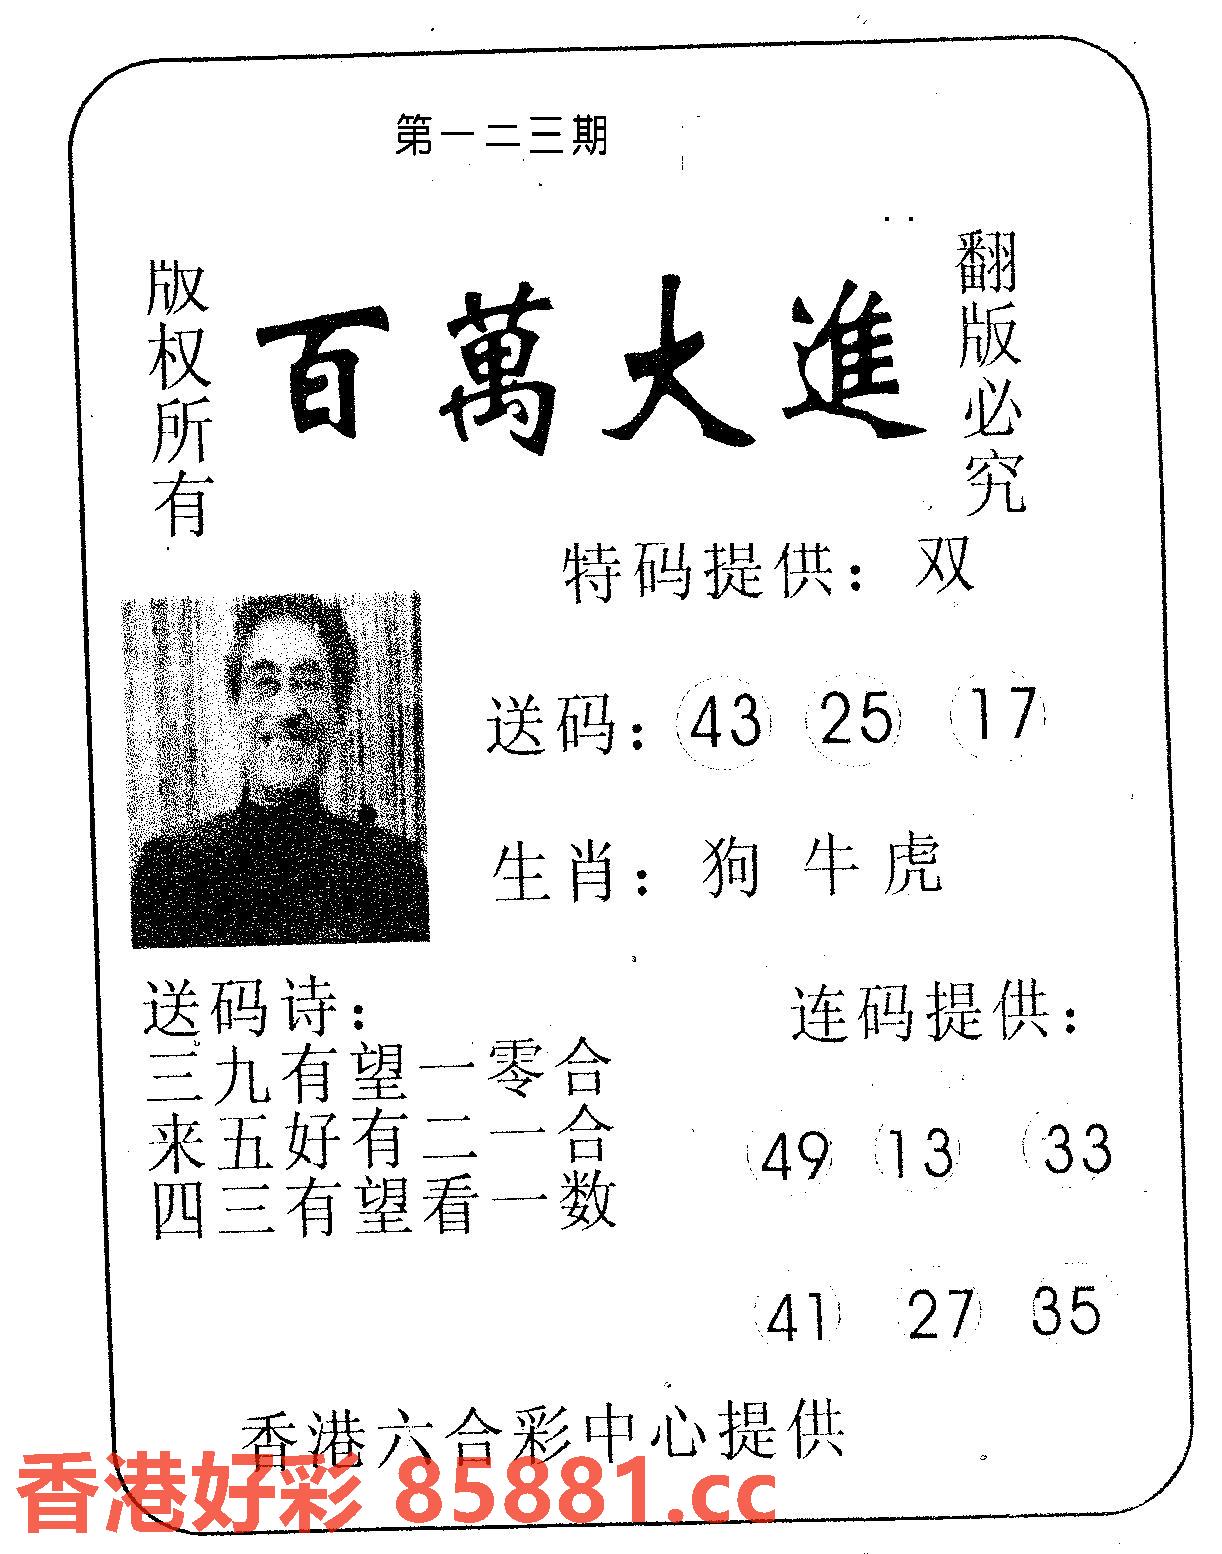 第一二三期
版权所有
百萬大進
翻版必究
特码提供：双
送码：43 25 17
生肖：狗 牛 虎
送码诗：
三九有望一零合
来五好有二一合
四三有望看一数
连码提供：
49 13 33
41 27 35
香港六合彩中心提供
香港好彩 85881.cc